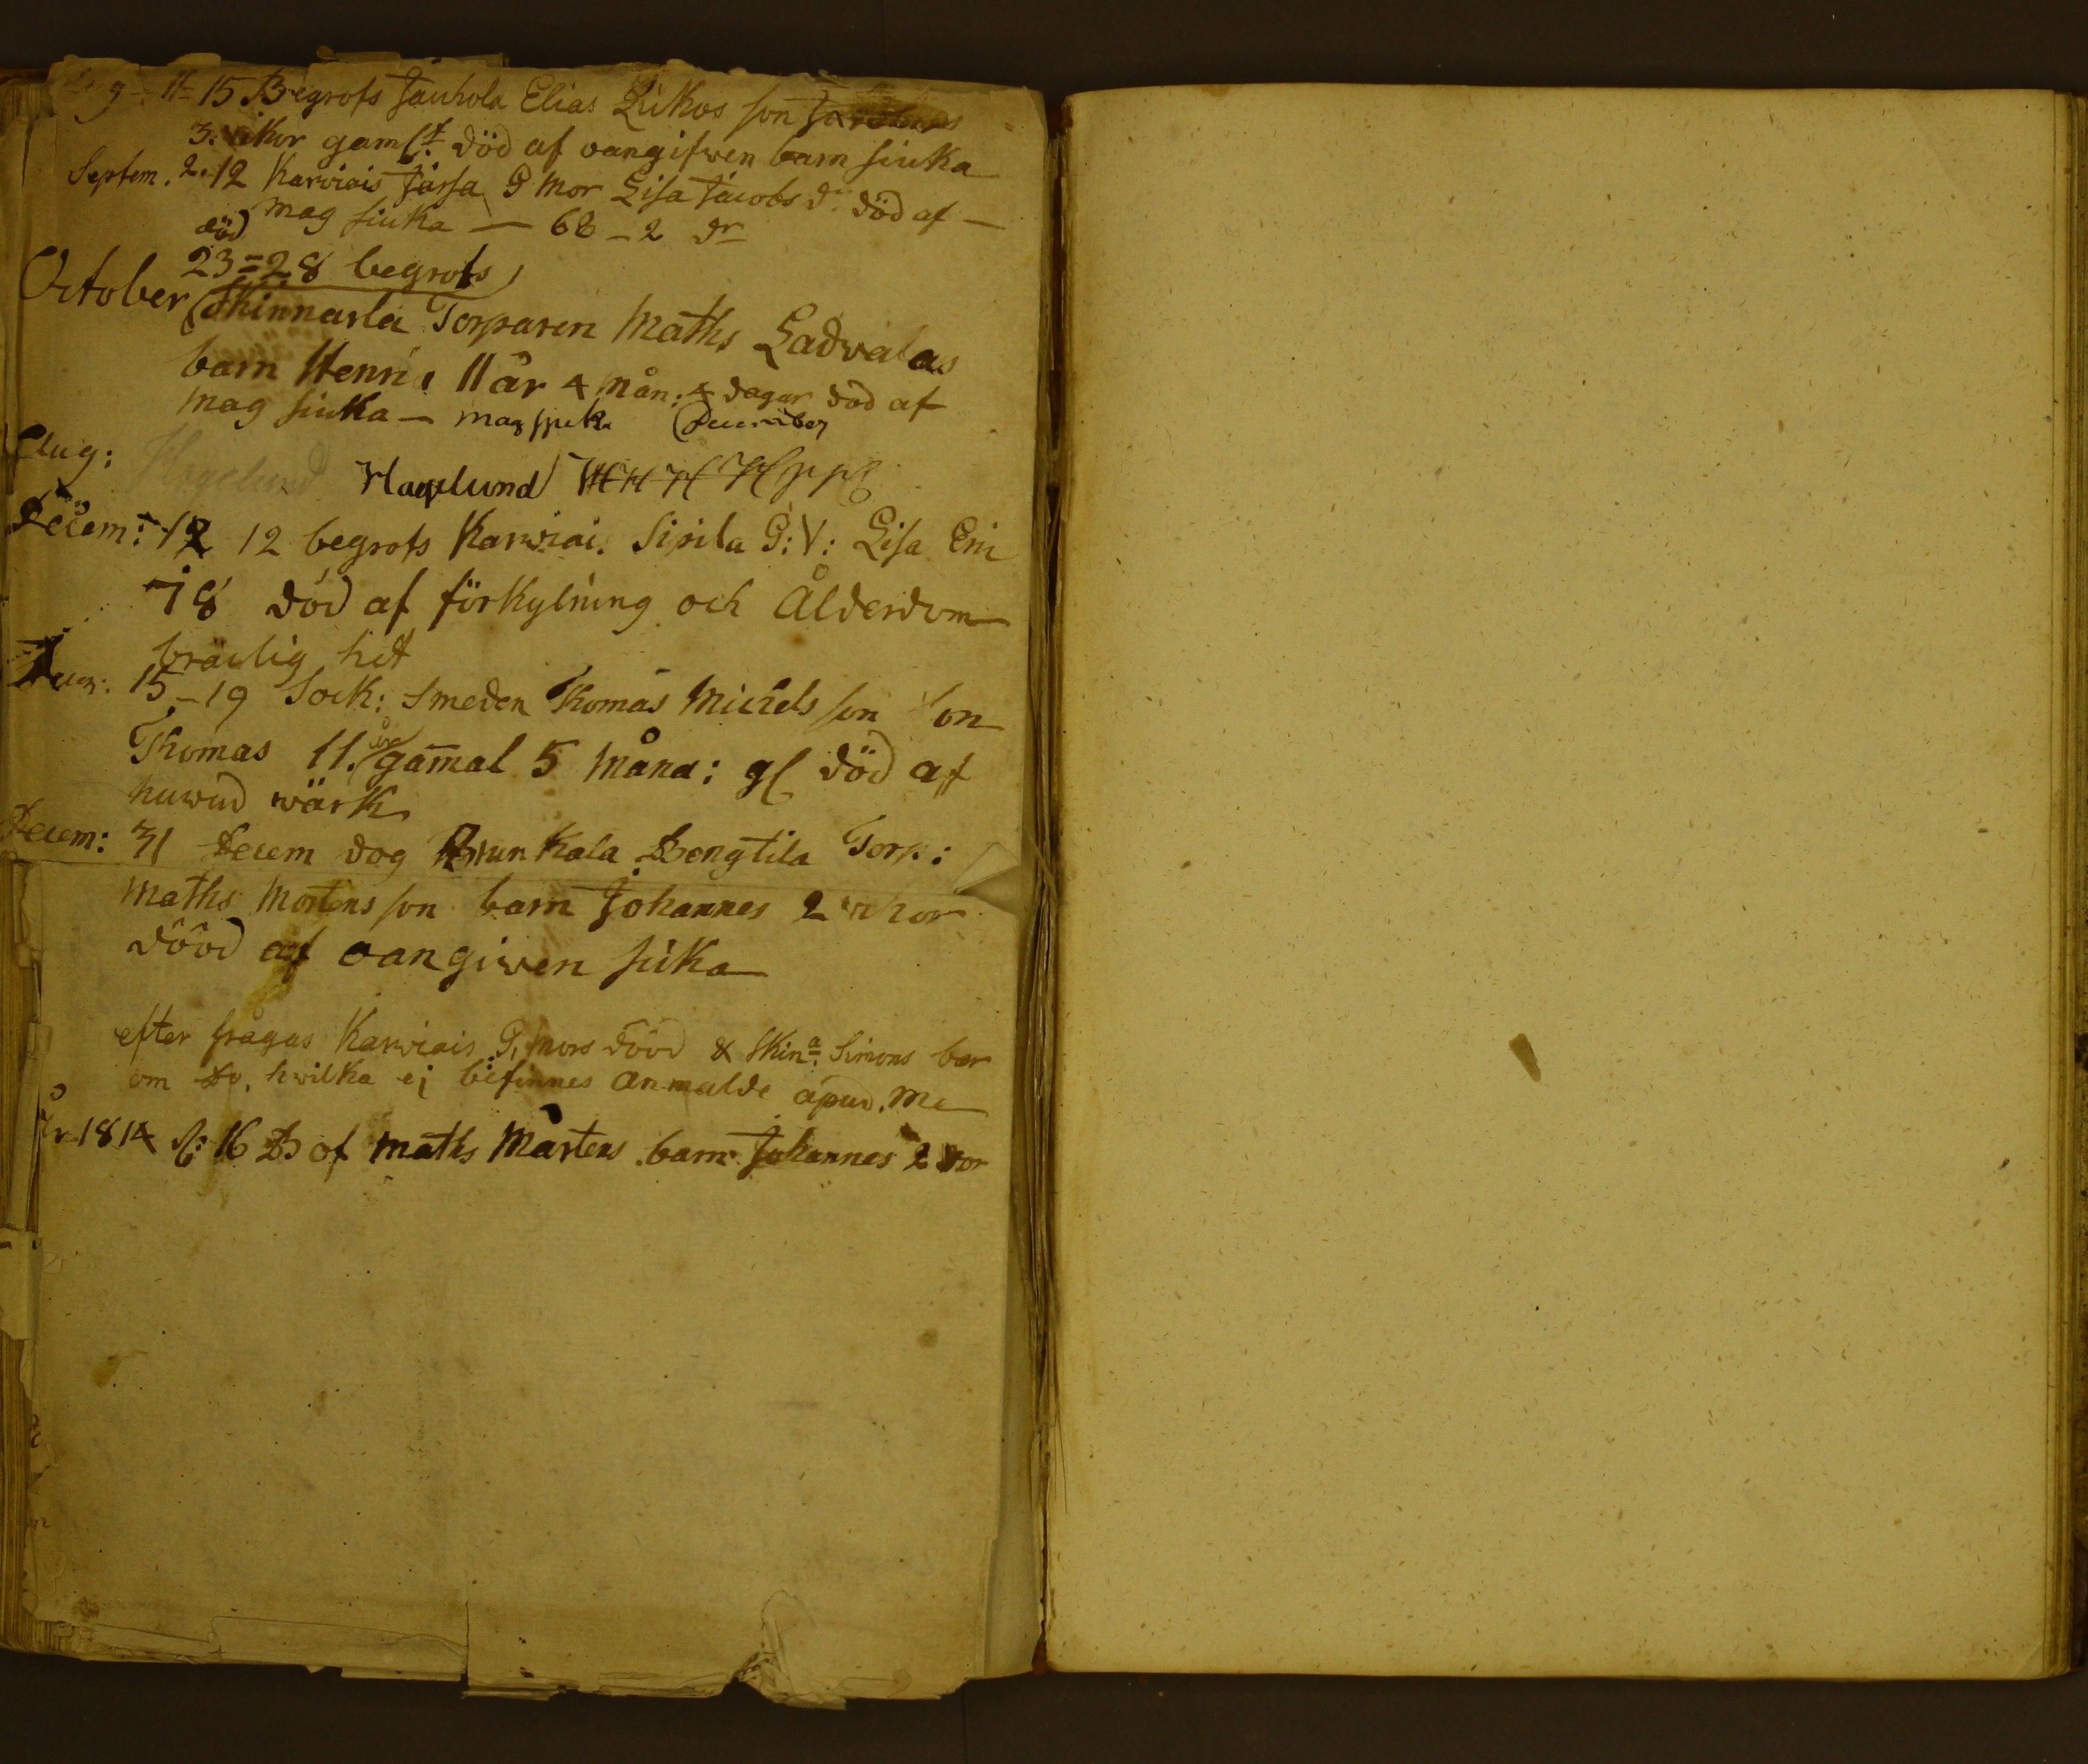 11 - 15 Begrofs Jauhola Elias Lukos son
3: wikor gamlt. död af oangifwen barn siuka
Septem. 2. 12 Karwiais Jässa G Mor Lisa Jacobs dr död af —
mag siuka — 68 - 2 dr
död
23 = 28 begrofs
October Skinnarla Torparen Maths Ladvalas
barn Henric 11 år 4 mån: 4 dagar död af
mag siuka — mag sjuka December
Aug: Hagelund Hagelund
Decem: 12 12 begrofs Karwiai. Sipila G: V: Lisa Eric
78 död af förkylning och Ålderdom
bräcklig het
Decem: 15 - 19 Sock: Smeden Thomas Michels son Son
Thomas 11. år gam̄al 5 Måna: gl död af
huwud wärk
Decem: 31 Decem dog Brunkala Bengtila Torp:
Maths Mortens son barn Johannes 2 wikor
döôd af oangiwen siuka
efter frågas Karwiais G, Mors döôd & Skina. Simons bar
om Do, hwilka ej befinnes anmalde apud. Me
År 1814 16 B of Maths Mårtens barn Johannes 2